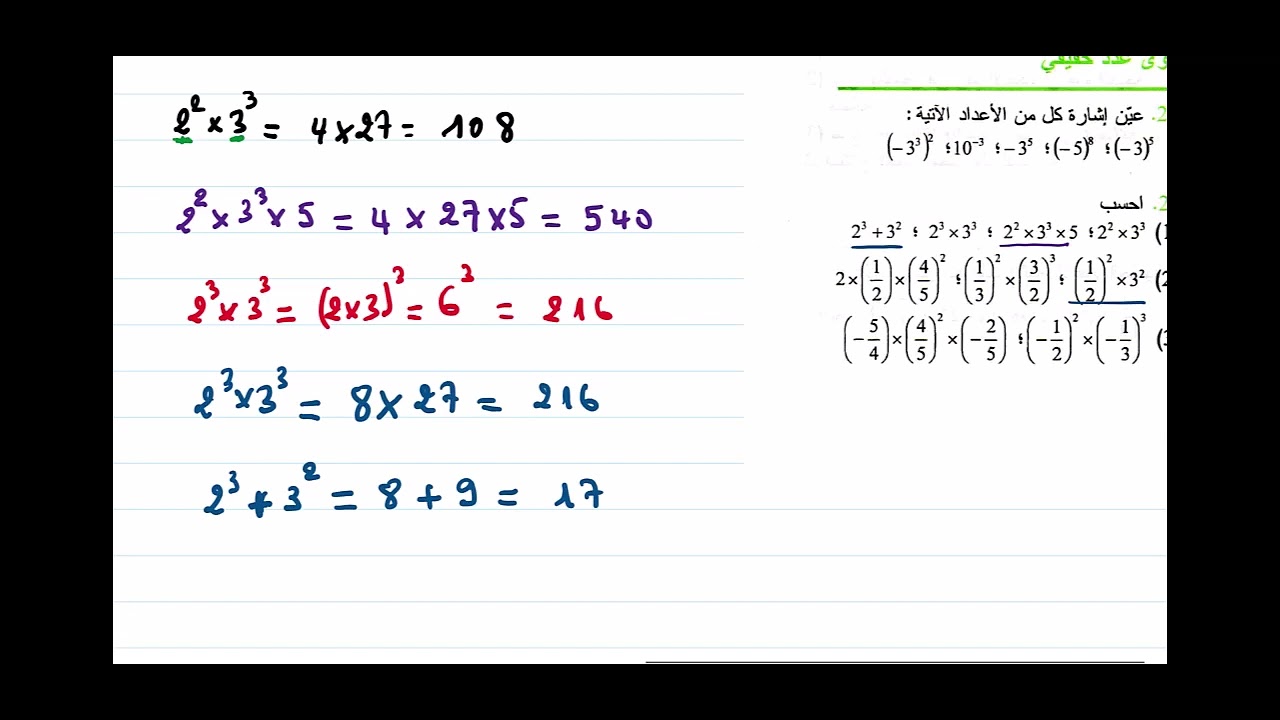 2² × 3³ = 4 × 27 = 108
2² × 3³ × 5 = 4 × 27 × 5 = 540
2³ × 3³ = (2×3)³ = 6³ = 216
2³ × 3³ = 8 × 27 = 216
2³ + 3² = 8 + 9 = 17
عدد حقيقي
2. عيّن إشارة كل من الأعداد الآتية :
(−3)⁵ ؛ (−5)⁸ ؛ −3⁵ ؛ 10⁻³ ؛ (−3³)²
2. احسب
1) 2² × 3³ ؛ 2² × 3³ × 5 ؛ 2³ × 3³ ؛ 2³ + 3²
2) (1/2)² × 3² ؛ (3/2)³ × (1/3)² ؛ 2 × (1/2) × (4/5)²
3) (−1/2)² × (−1/3)³ ؛ (−5/4) × (4/5)² × (−2/5)